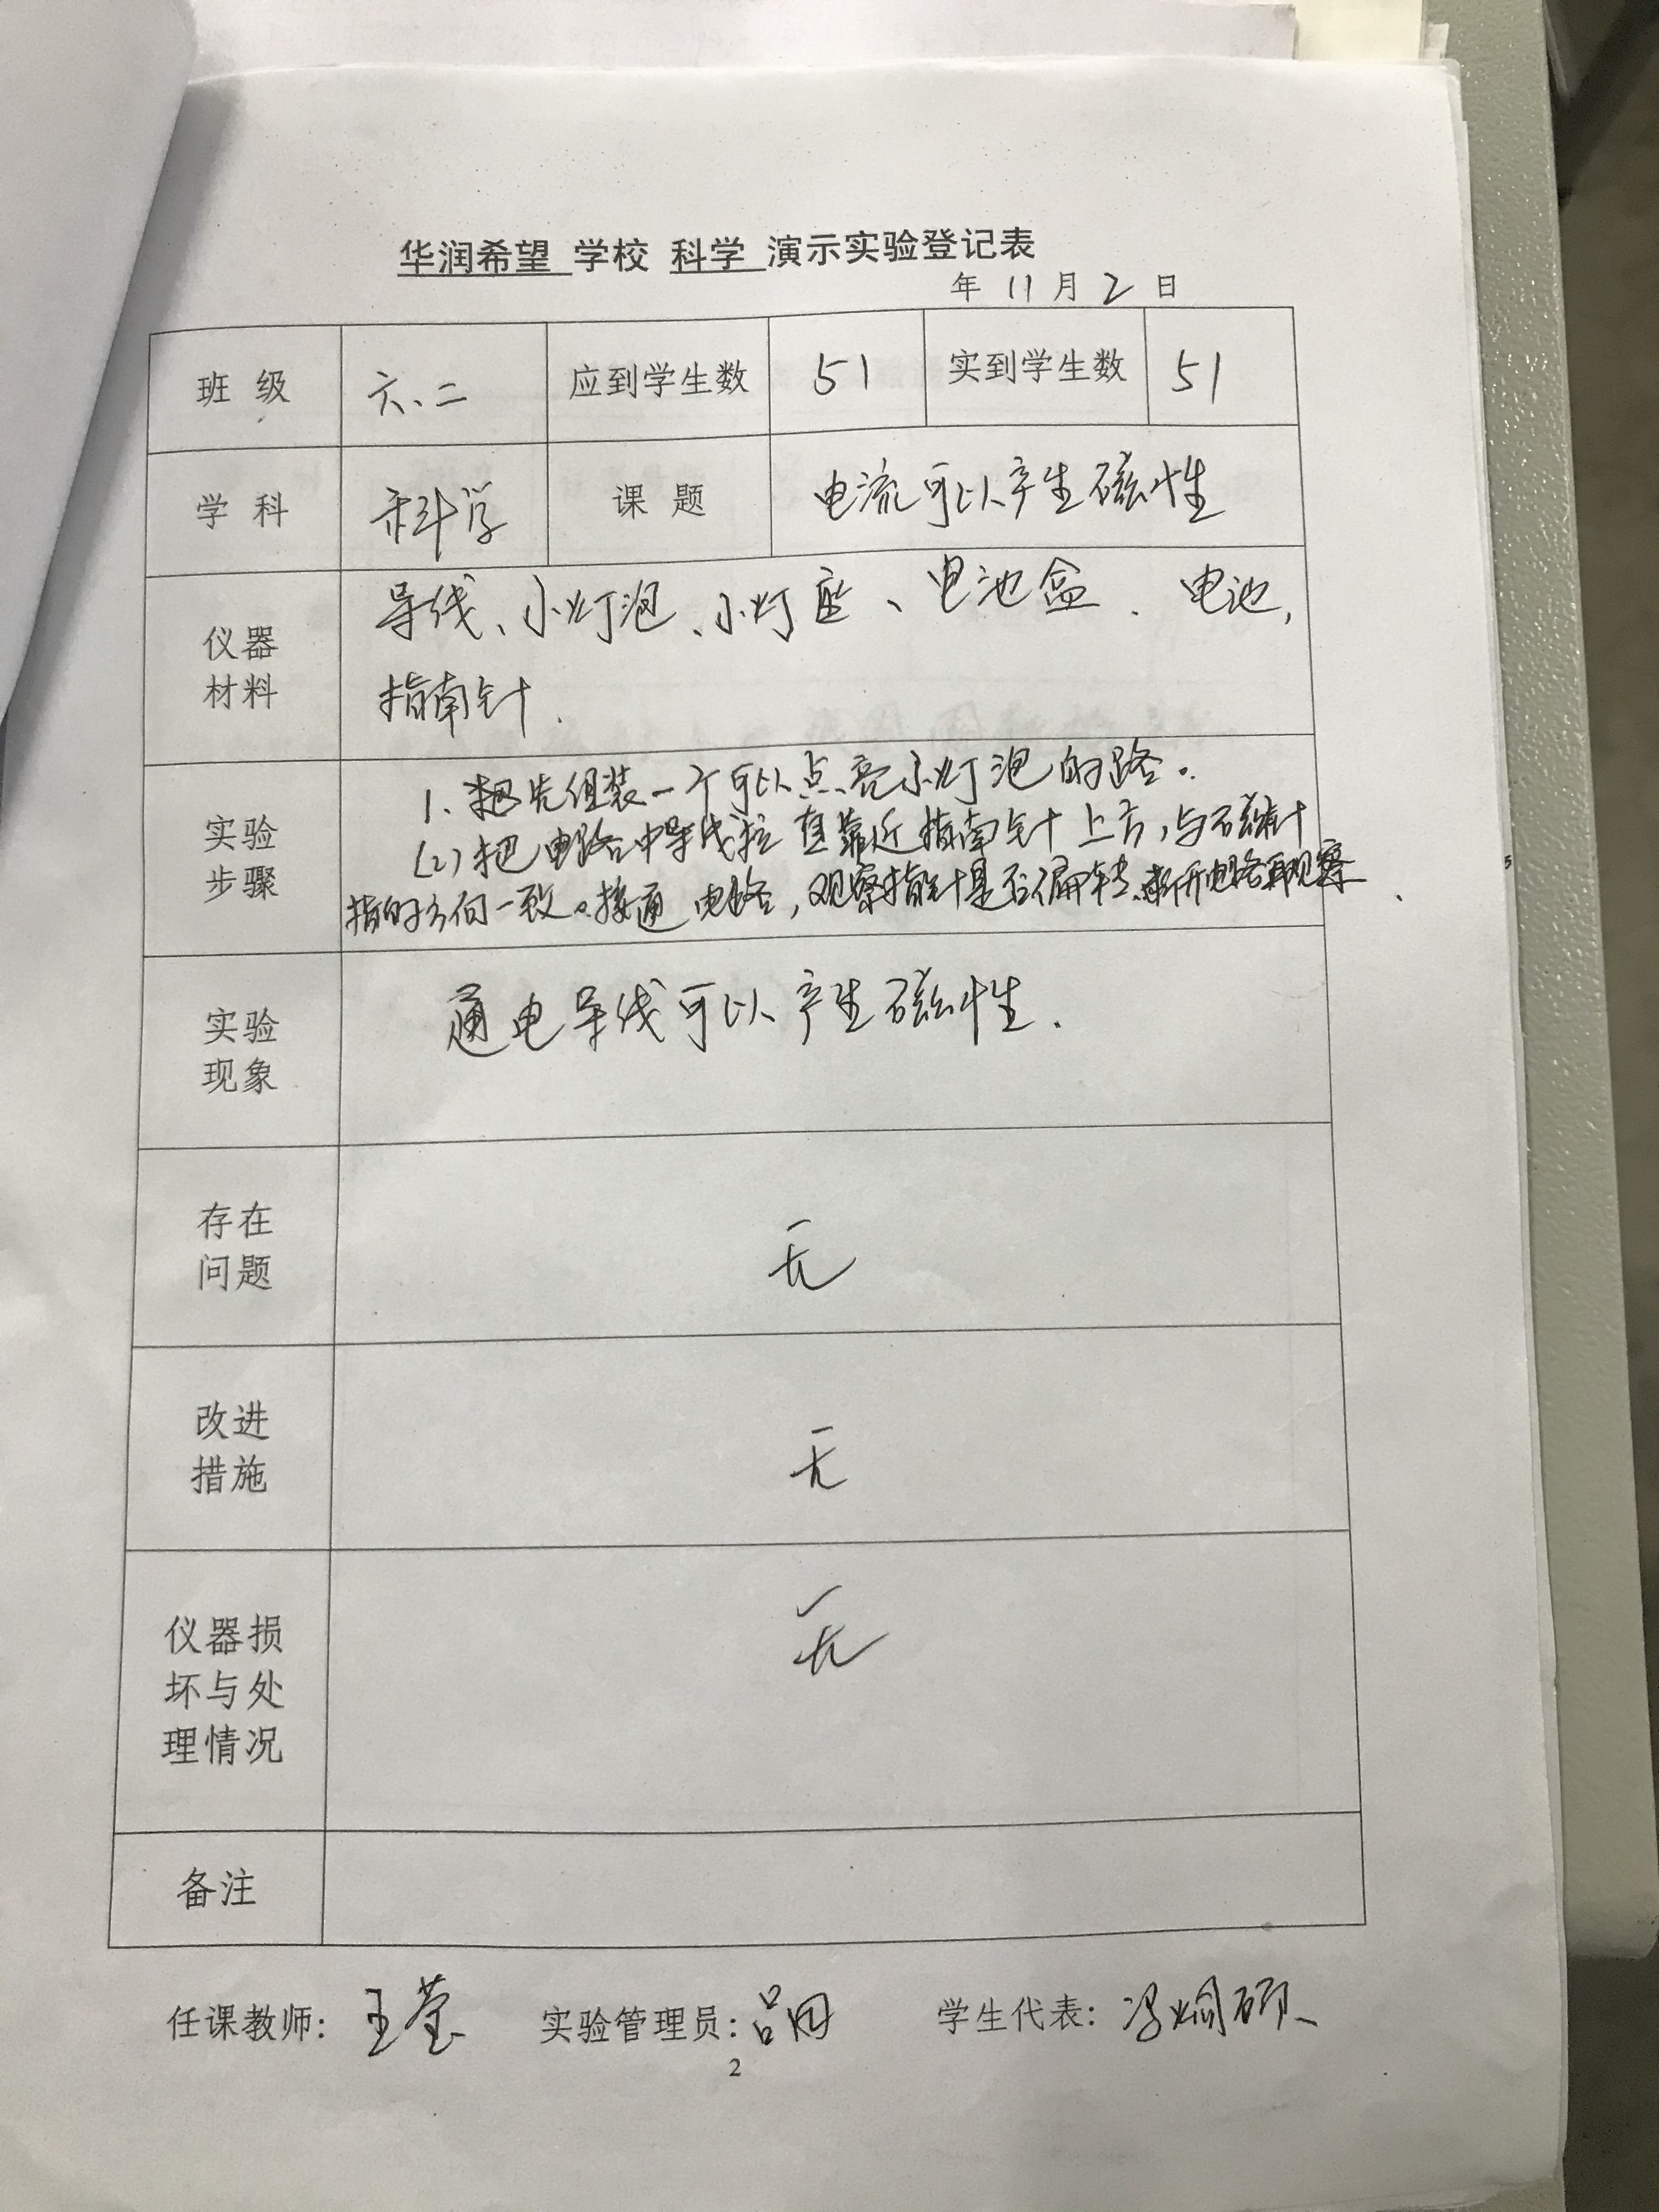 华润希望 学校 科学 演示实验登记表
年 11 月 2 日
班 级 六、二 应到学生数 51 实到学生数 51
学 科 科学 课 题 电流可以产生磁性
仪器
材料
导线、小灯泡、小灯座、电池盒、电池,
指南针.
实验
步骤
1、把先组装一个可以点亮小灯泡的路。
(2)把电路中导线拉直靠近指南针上方,与磁针
指的方向一致。接通电路,观察指针是否偏转.断开电路再观察
实验
现象
通电导线可以产生磁性.
存在
问题
无
改进
措施
无
仪器损
坏与处
理情况
无
备注
任课教师: 王莹 实验管理员: 吕 学生代表: 冯
2